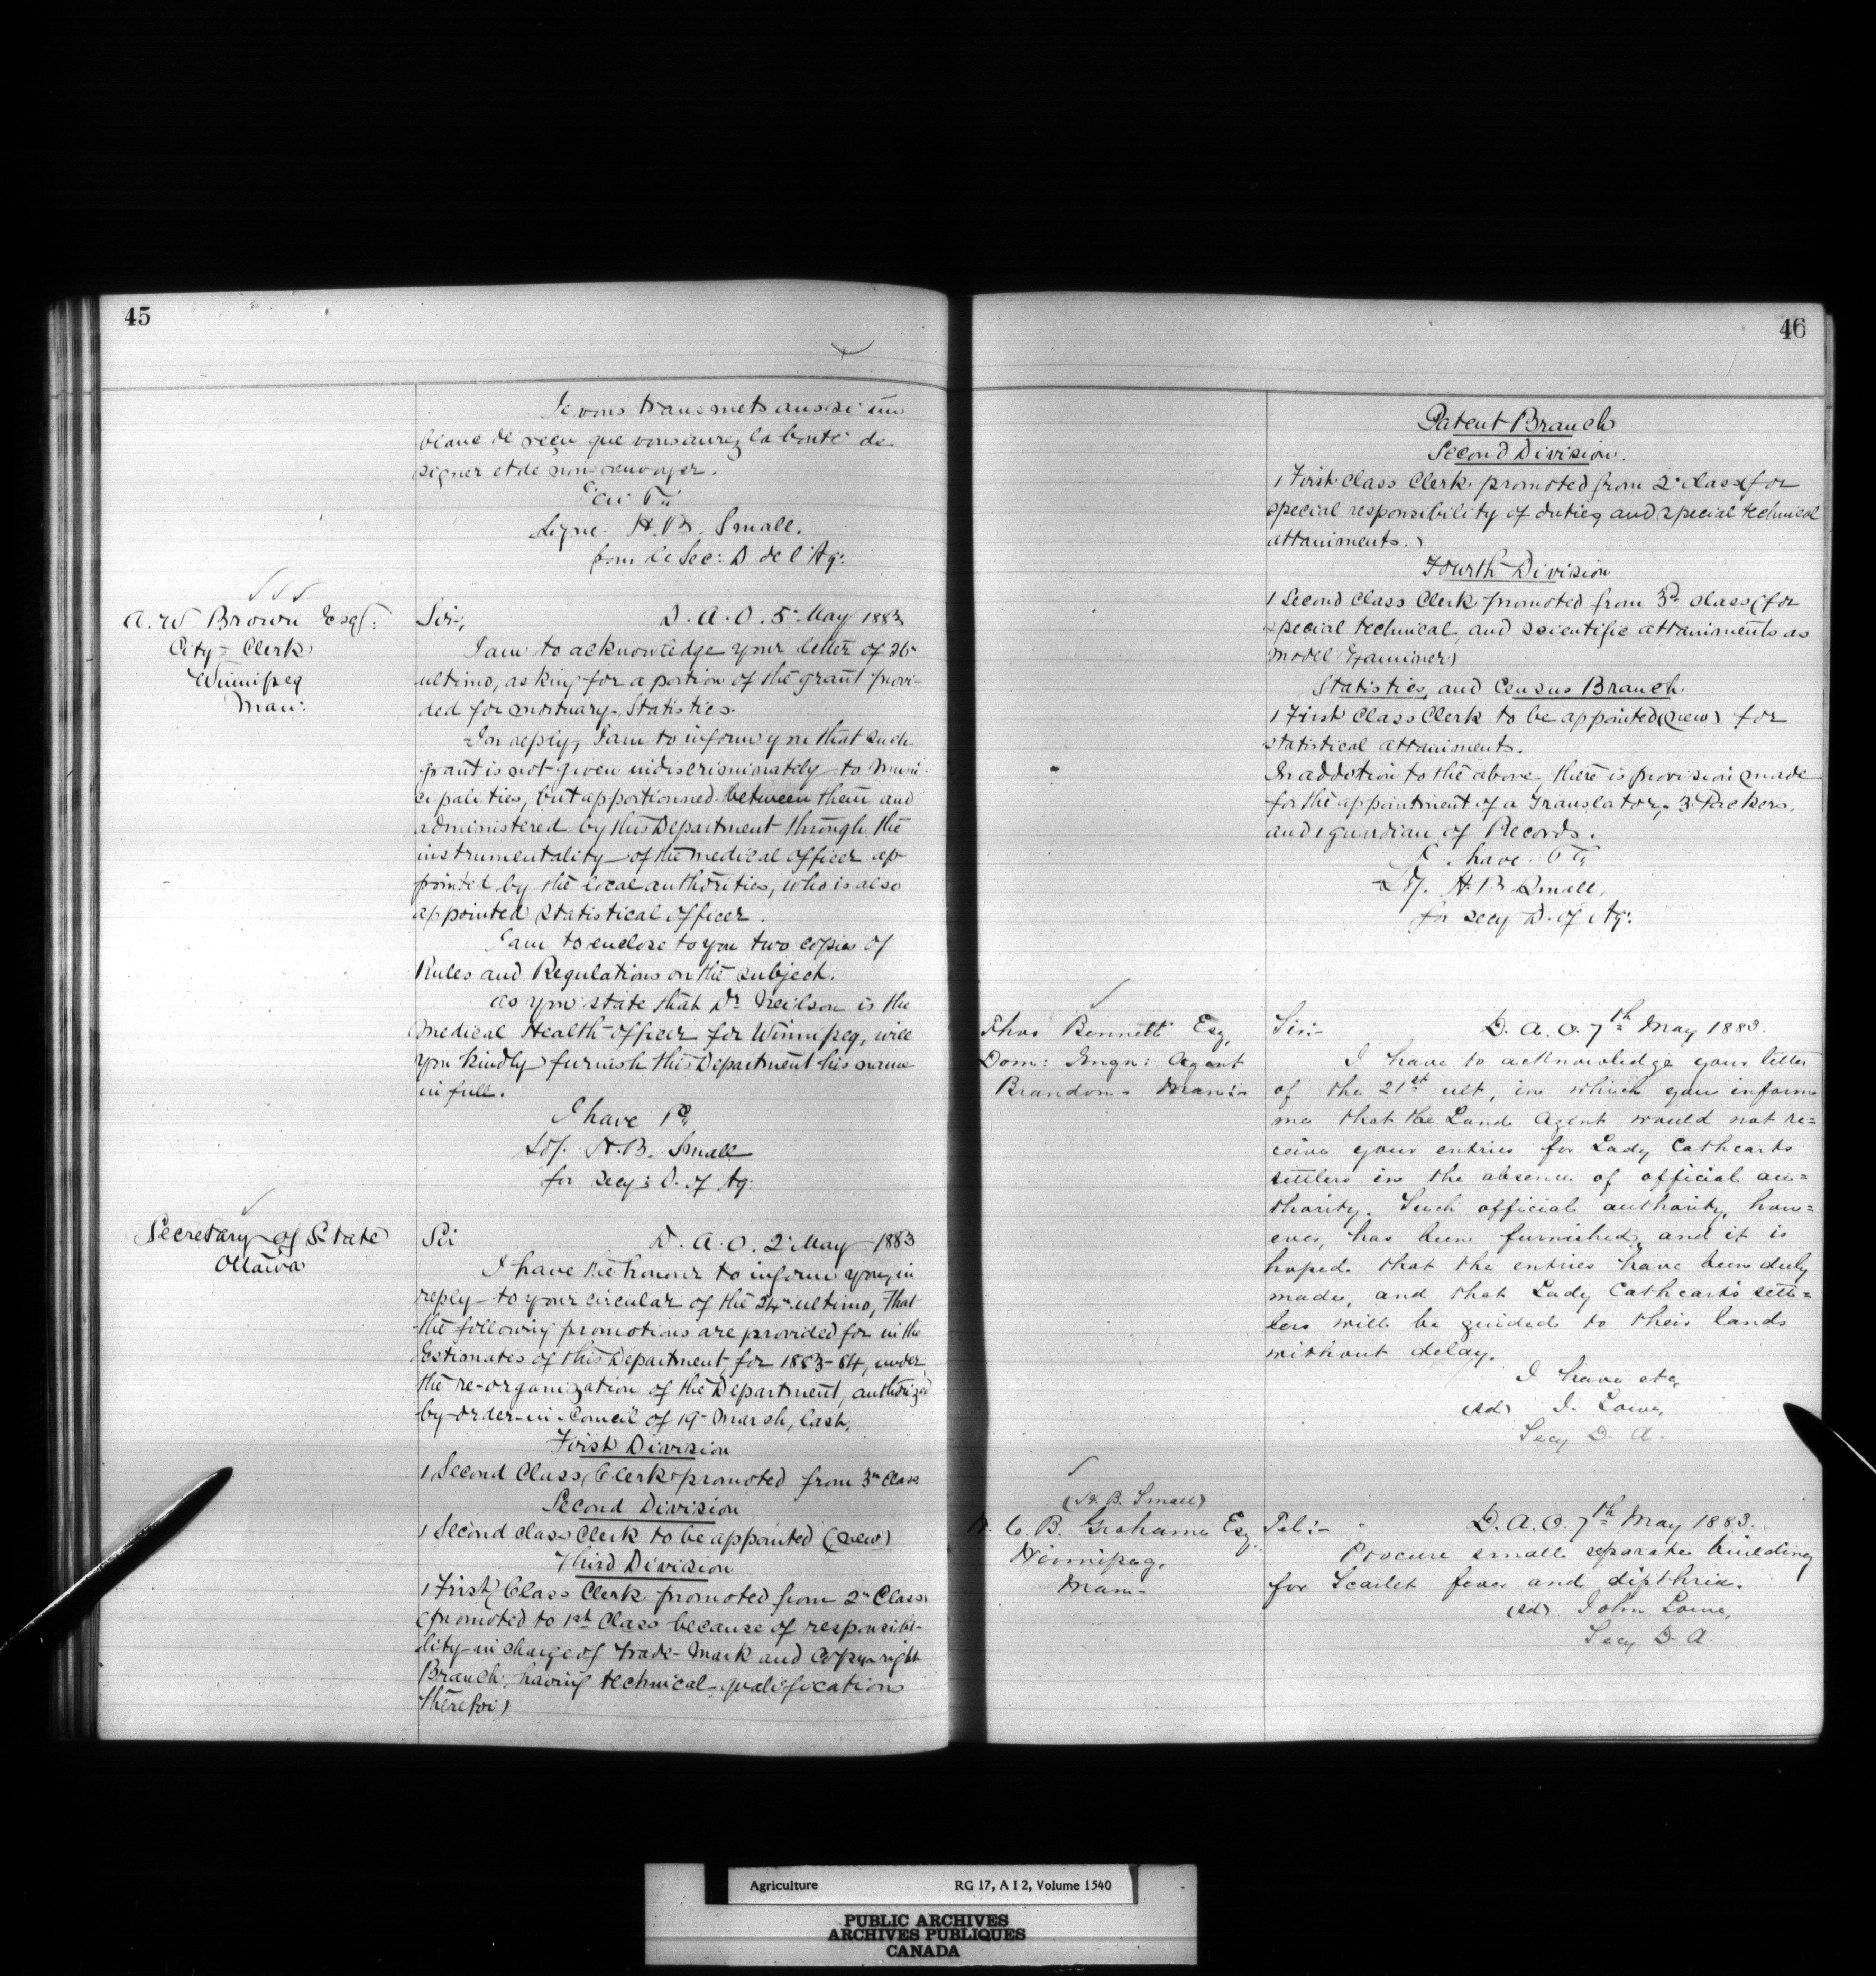 45
Je vous transmets aussi un
blanc de reçu que vous aurez la bonté de
signer et de nous renvoyer.
Signe. H. B. Small.
pour le Sec: D de l'Ag:
A. W Brown Esq:
City - Clerk
Winnipeg
Man:
Sir, D. A. O. 5 May 1883
I am to acknowledge your letter of 26
ultimo, asking for a portion of the grant provi-
ded for mortuary Statistics.
In reply, I am to inform you that such
grant is not given indiscriminately to Muni-
cipalities, but apportionned between them and
administered by this Department through the
instrumentality of the medical officer ap-
pointed by the local authorities, who is also
appointed Statistical officer.
I am to enclose to you two copies of
Rules and Regulations on the subject.
As you state that Dr Neilson is the
Medical Health-officer for Winnipeg, will
you kindly furnish this Department his name
in full.
I have
H. B. Small
for Secy: D. of Ag:
Secretary of State
Ottawa
Sir D. A. O. 2 May 1883
I have the honour to inform you, in
reply to your circular of the 24th ultimo, that
the following promotions are provided for in the
Estimates of this Department for 1883-84, under
the re-organization of the Department, authorized
by order-in-Council of 19 March, last.
First Division
1 Second Class Clerk promoted from 3rd Class
Second Division
1 Second class Clerk to be appointed (new)
Third Division
1 First Class Clerk promoted from 2nd Class
(promoted to 1st Class because of responsibi-
lity in charge of Trade-Mark and Copyright
Branch, having technical qualifications
therefor)
46
Patent Branch
Second Division.
1 First Class Clerk promoted from 2 class (for
special responsibility of duties and special technical
attainments.)
Fourth Division
1 Second Class Clerk promoted from 3rd class (for
special technical and scientific attainments as
Model Examiner)
Statistics, and Census Branch
1 First Class Clerk to be appointed (new) for
statistical attainments.
In addition to the above, there is provision made
for the appointment of a Translator, 3 Packers,
and 1 guardian of Records.
I have
H. B Small,
for secy D. of Ag:
Thos Bennett Esq,
Dom: Imgn: Agent
Brandon - Man:-
Sir:- D. A. O. 7th May 1883.
I have to acknowledge your letter
of the 21st ult, in which you inform
me that the Land Agent would not re=
ceive your entries for Lady Cathcarts
settlers in the absence of official au=
thority. Such official authority, how=
ever, has been furnished, and it is
hoped that the entries have been duly
made, and that Lady Cathcart's sett=
lers will be guided to their lands
without delay.
I have etc,
(sd) J. Lowe,
Secy D. A.
(H. B. Small)
W. C. B. Grahame Esq
Winnipeg,
Man-
Tel:- D. A. O. 7th May 1883.
Procure small separate building
for Scarlet fever and dipthria.
(sd) John Lowe,
Secy D. A.
Agriculture RG 17, A I 2, Volume 1540
PUBLIC ARCHIVES
ARCHIVES PUBLIQUES
CANADA